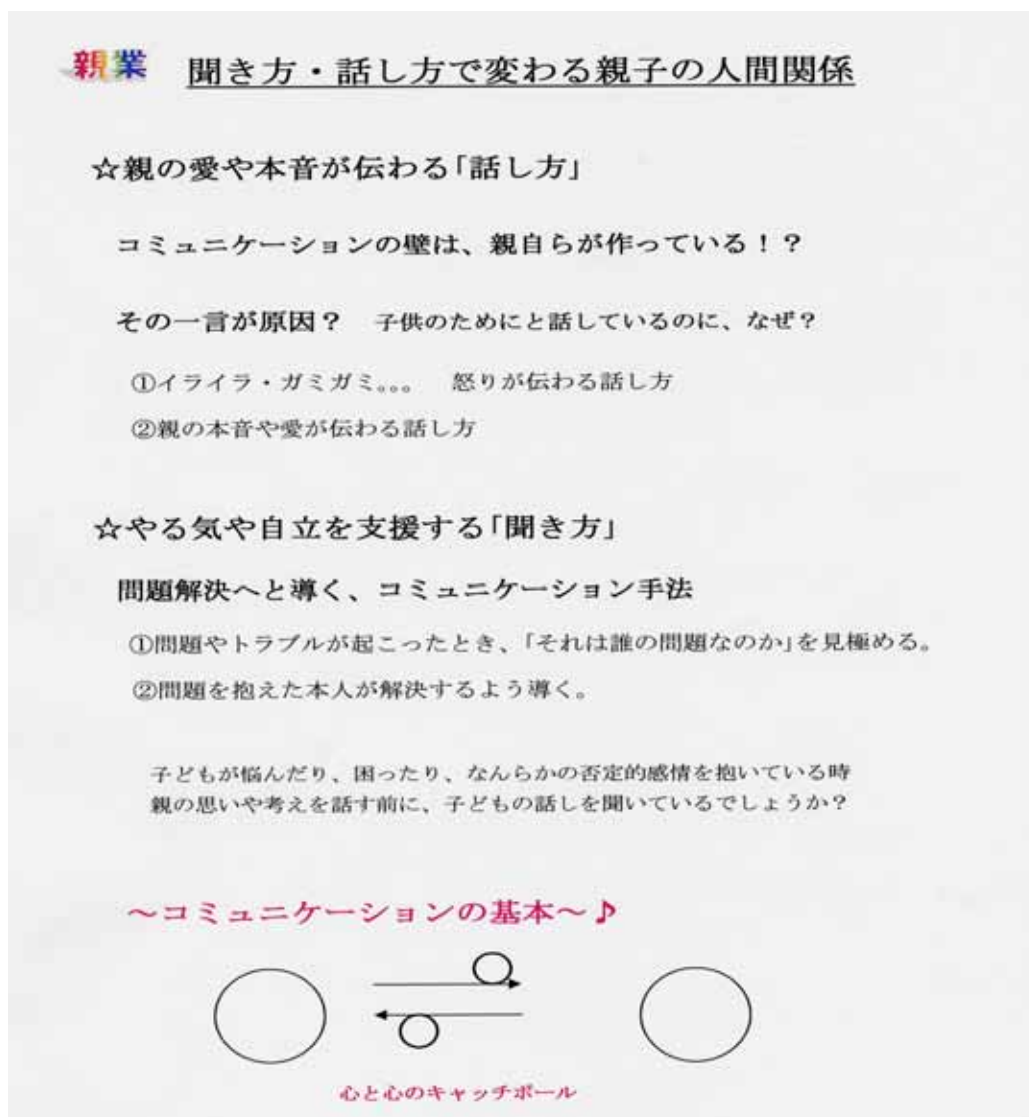 親業 聞き方・話し方で変わる親子の人間関係
☆親の愛や本音が伝わる「話し方」
コミュニケーションの壁は、親自らが作っている！？
その一言が原因？ 子供のためにと話しているのに、なぜ？
①イライラ・ガミガミ。。。 怒りが伝わる話し方
②親の本音や愛が伝わる話し方
☆やる気や自立を支援する「聞き方」
問題解決へと導く、コミュニケーション手法
①問題やトラブルが起こったとき、「それは誰の問題なのか」を見極める。
②問題を抱えた本人が解決するよう導く。
子どもが悩んだり、困ったり、なんらかの否定的感情を抱いている時
親の思いや考えを話す前に、子どもの話しを聞いているでしょうか？
～コミュニケーションの基本～♪
心と心のキャッチボール